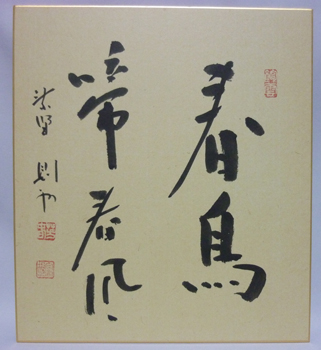 春鳥
啼春風
紫野 則和